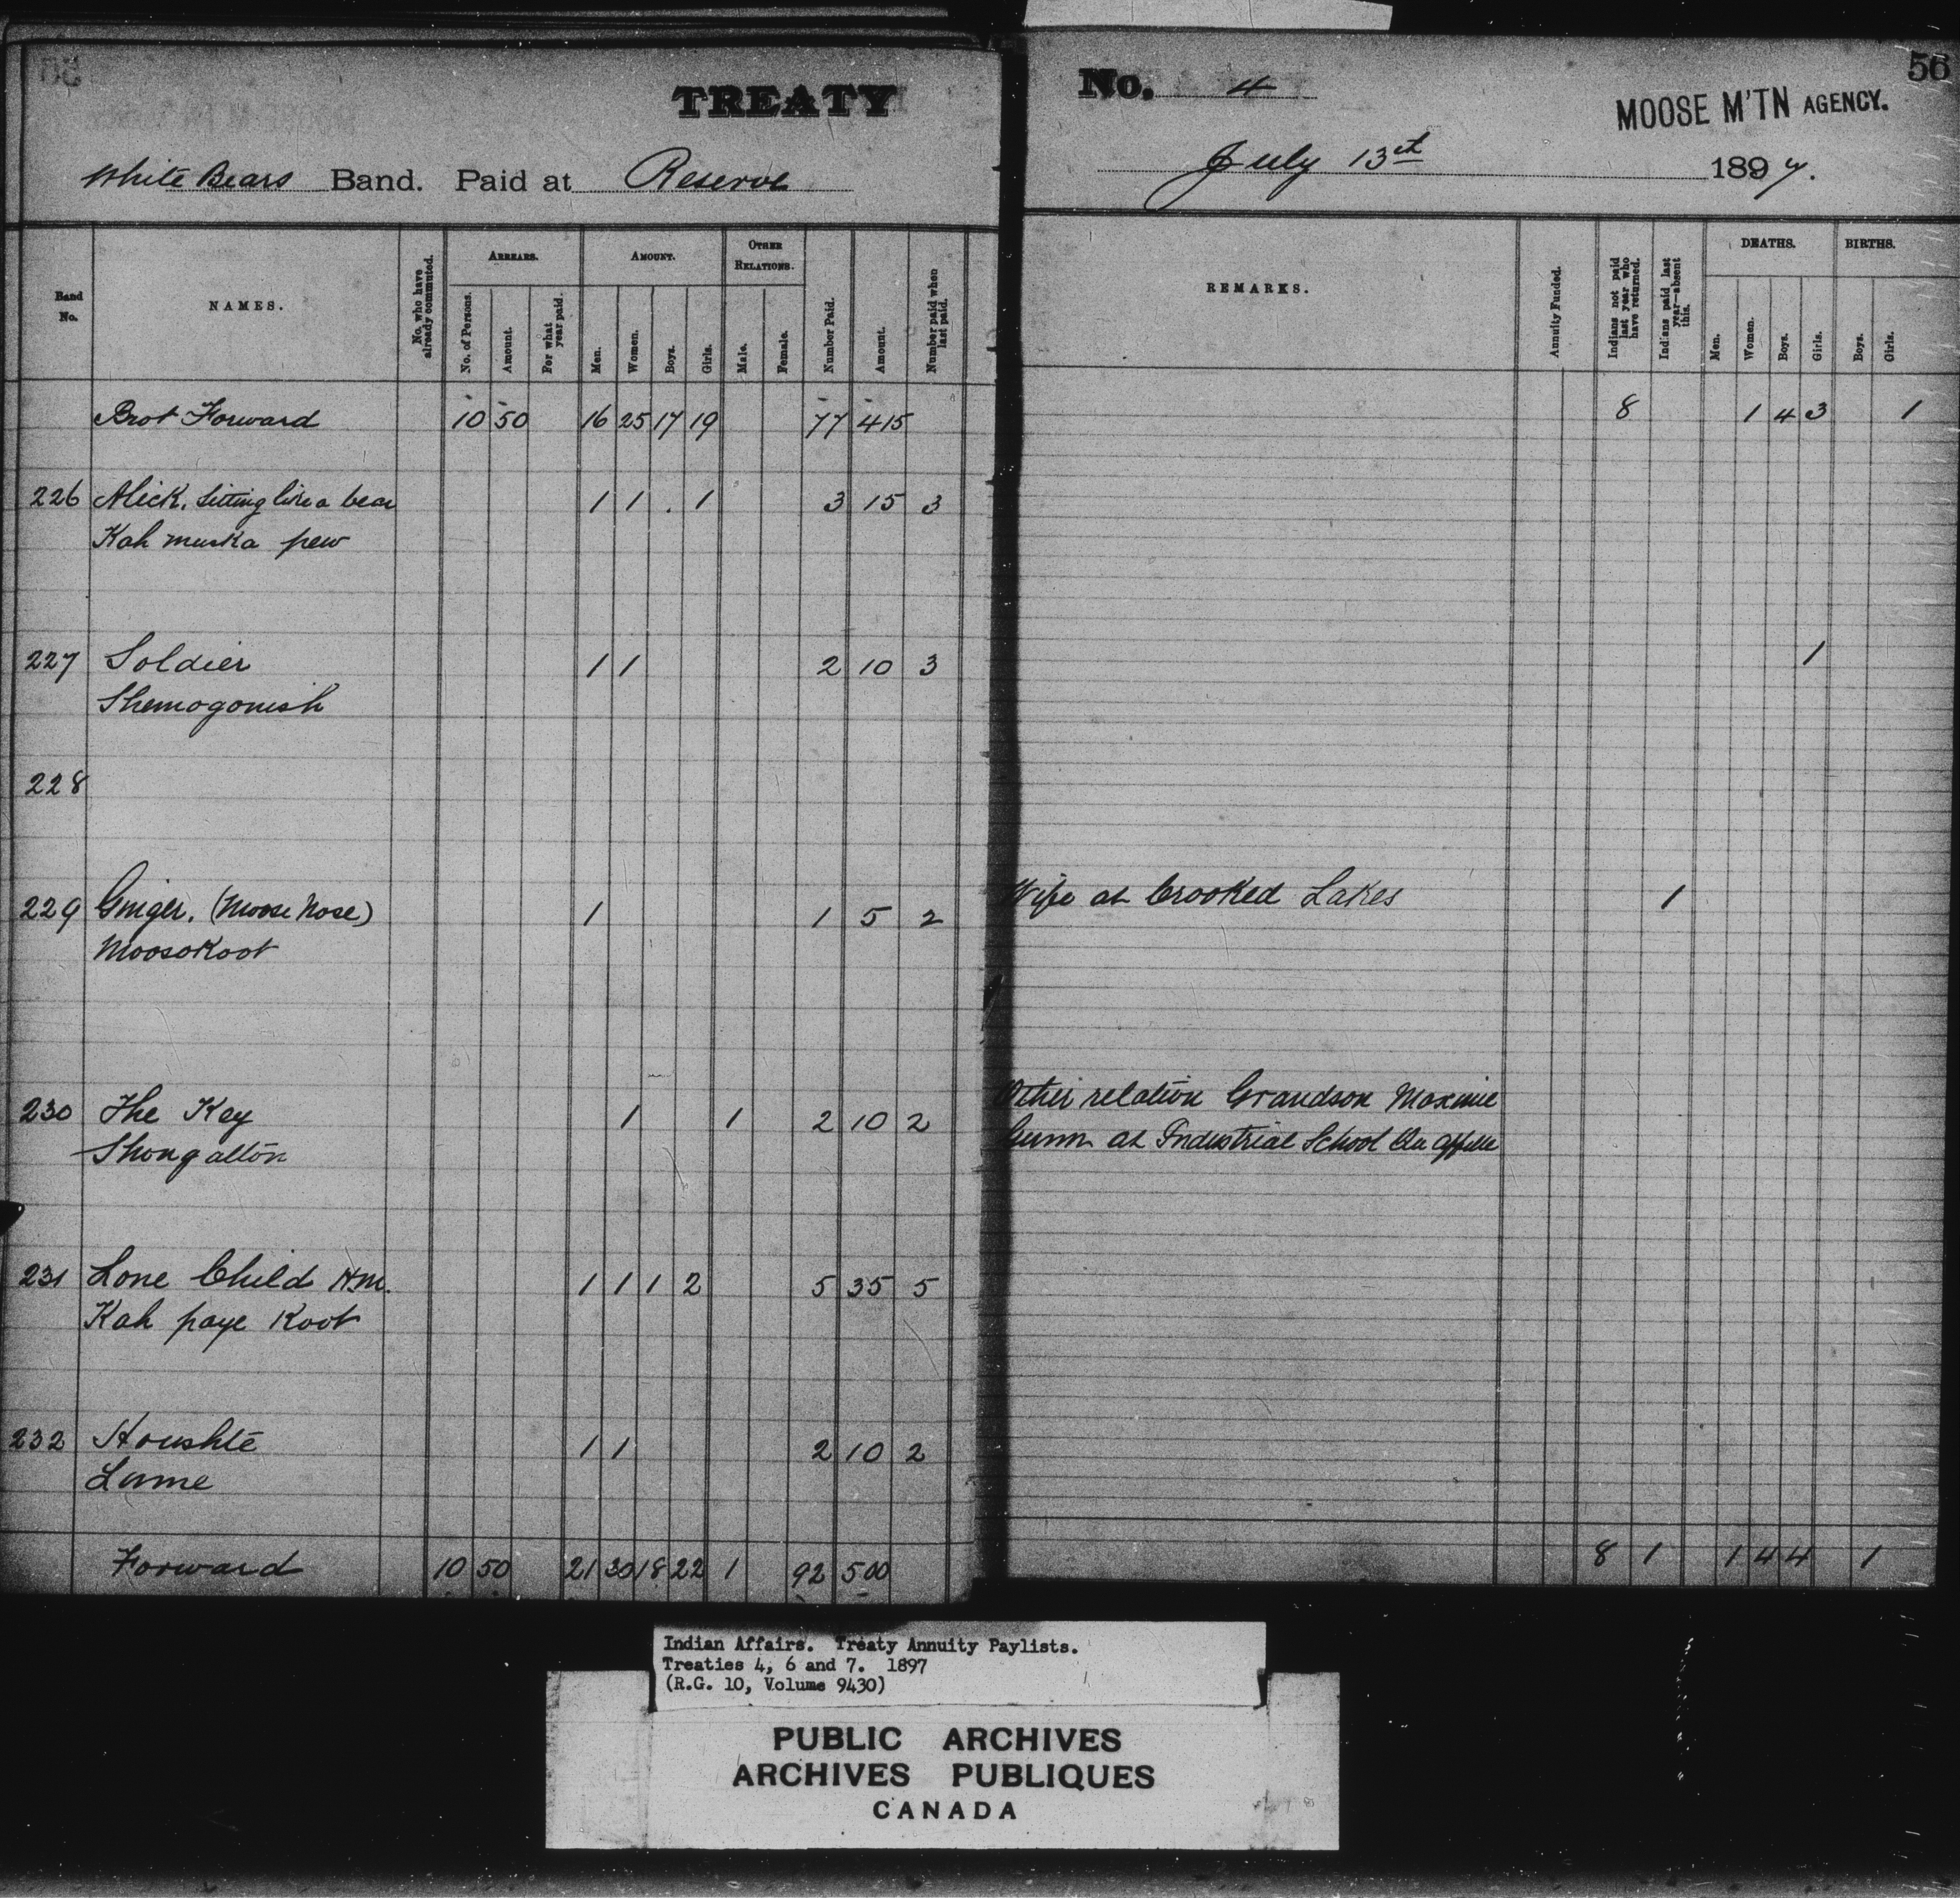 56
TREATY No. 4
MOOSE M'TN AGENCY.
White Bears Band. Paid at Reserve July 13th 1897.
Band No. NAMES. No. who have already commuted. ARREARS. No. of Persons. Amount. For what year paid. AMOUNT. Men. Women. Boys. Girls. OTHER RELATIONS. Male. Female. Number Paid. Amount. Number paid when last paid. REMARKS. Annuity Funded. Indians not paid last year who have returned. Indians paid last year—absent this. DEATHS. Men. Women. Boys. Girls. BIRTHS. Boys. Girls.
Brot Forward 10 50 16 25 17 19 77 415 8 1 4 3 1
226 Alick. Sitting like a bear 1 1 . 1 3 15 3
Kah muska pew
227 Soldier 1 1 2 10 3 1
Shemogonish
228
229 Ginger. (Moose Nose) 1 1 5 2 Wife at Crooked Lakes 1
Moosokoot
230 The Key 1 1 2 10 2 Other relation Grandson Maxime
Shongalton Gunn at Industrial School Qu'appelle
231 Lone Child Hm. 1 1 1 2 5 35 5
Kah paye Koot
232 Houshte 1 1 2 10 2
Lame
Forward 10 50 21 30 18 22 1 92 500 8 1 1 4 4 1
Indian Affairs. Treaty Annuity Paylists.
Treaties 4, 6 and 7. 1897
(R.G. 10, Volume 9430)
PUBLIC ARCHIVES
ARCHIVES PUBLIQUES
CANADA